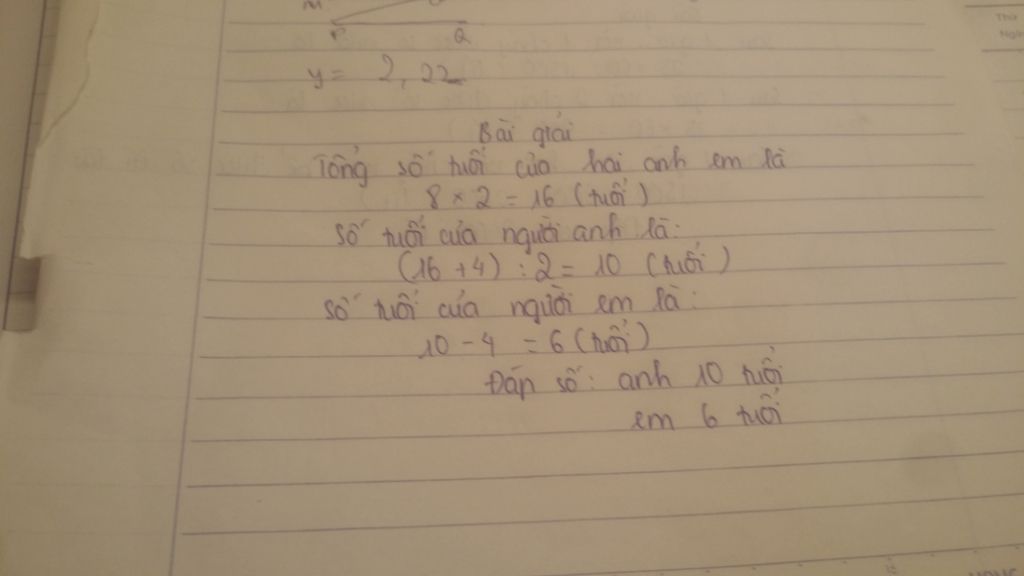 M
P Q
y = 2,22
Bài giải
Tổng số tuổi của hai anh em là
8 × 2 = 16 (tuổi)
Số tuổi của người anh là:
(16 + 4) : 2 = 10 (tuổi)
Số tuổi của người em là:
10 - 4 = 6 (tuổi)
Đáp số: anh 10 tuổi
em 6 tuổi
Thứ
Ngày